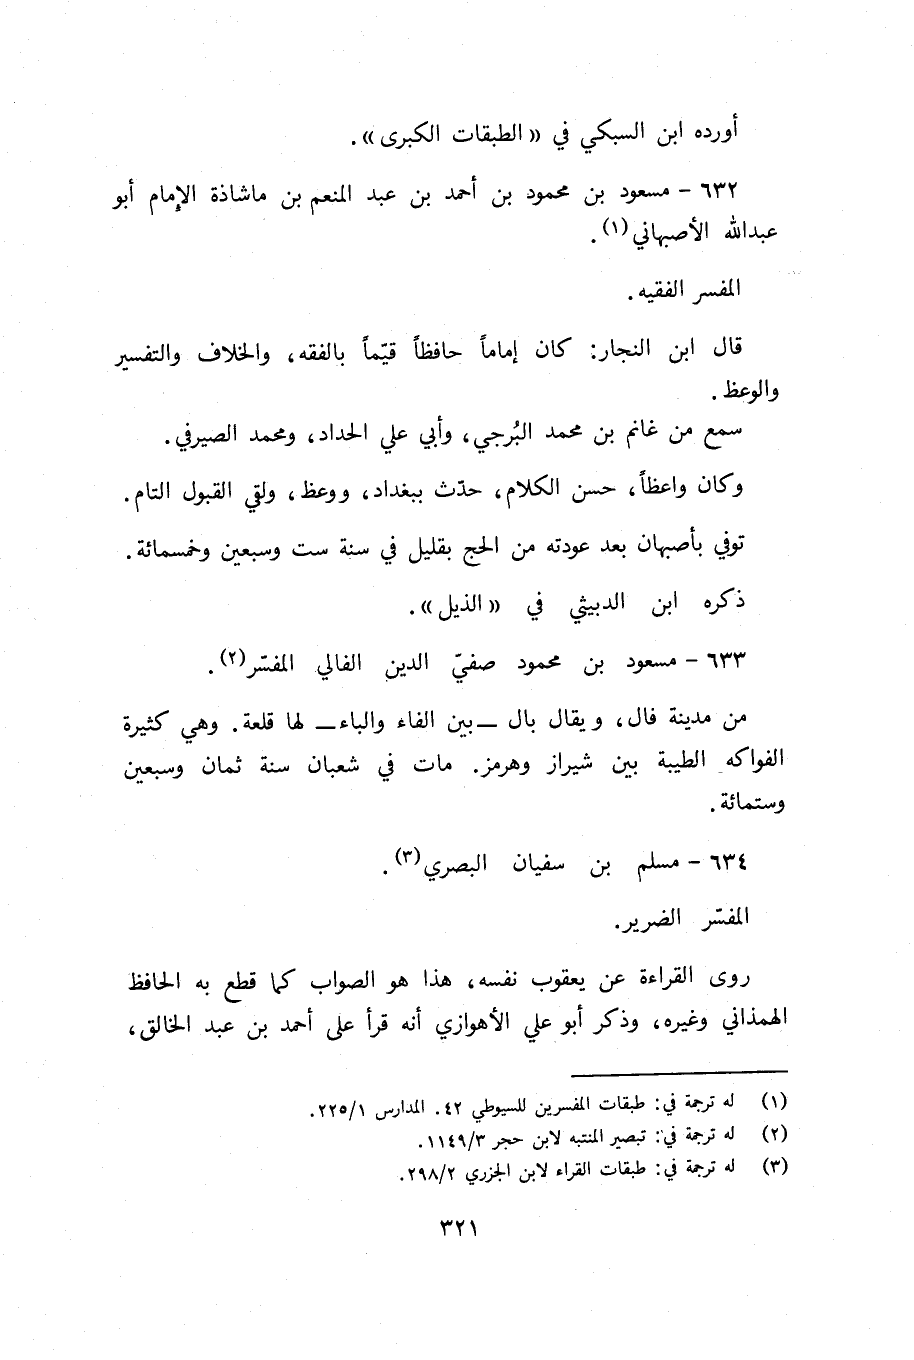 أورده ابن السبكي في « الطبقات الكبرى » .
٦٣٢ – مسعود بن محمود بن أحمد بن عبد المنعم بن ماشاذة الإمام أبو
عبدالله الأصبهاني(١) .
المفسر الفقيه .
قال ابن النجار: كان إماماً حافظاً قيّماً بالفقه، والخلاف والتفسير
والوعظ .
سمع من غانم بن محمد البُرجي، وأبي علي الحداد، ومحمد الصيرفي .
وكان واعظاً، حسن الكلام، حدّث ببغداد، ووعظ، ولقي القبول التام .
توفي بأصبهان بعد عودته من الحج بقليل في سنة ست وسبعين وخمسمائة .
ذكره ابن الدبيثي في « الذيل » .
٦٣٣ – مسعود بن محمود صفيّ الدين الفالي المفسّر(٢) .
من مدينة فال، ويقال بال ــ بين الفاء والباء ــ لها قلعة. وهي كثيرة
الفواكه الطيبة بين شيراز وهرمز. مات في شعبان سنة ثمان وسبعين
وستمائة .
٦٣٤ – مسلم بن سفيان البصري(٣) .
المفسّر الضرير .
روى القراءة عن يعقوب نفسه، هذا هو الصواب كما قطع به الحافظ
الهمذاني وغيره، وذكر أبو علي الأهوازي أنه قرأ على أحمد بن عبد الخالق،
(١) له ترجمة في: طبقات المفسرين للسيوطي ٤٢. المدارس ٢٢٥/١.
(٢) له ترجمة في: تبصير المنتبه لابن حجر ١١٤٩/٣.
(٣) له ترجمة في: طبقات القراء لابن الجزري ٢٩٨/٢.
٣٢١